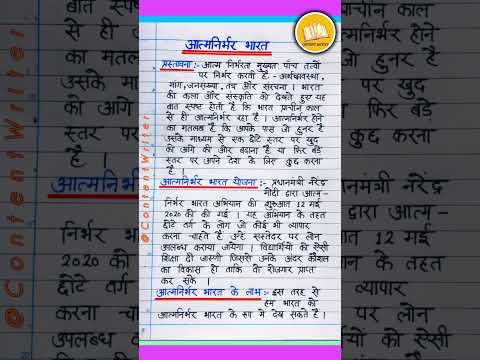 आत्मनिर्भर भारत
प्रस्तावना :- आत्म निर्भरता मुख्यतः पाँच तत्वों
पर निर्भर करती है - अर्थव्यवस्था,
मांग, जनसंख्या, तंत्र और संरचना । भारत
की कला और संस्कृति को देखते हुए यह
बात स्पष्ट होती है कि भारत प्राचीन काल
से ही आत्मनिर्भर रहा है । आत्मनिर्भर होने
का मतलब है कि आपके पास जो हुनर है
उसके माध्यम से एक छोटे स्तर पर खुद
को आगे की ओर बढ़ाना है या फिर बड़े
स्तर पर अपने देश के लिए कुछ करना
है ।
आत्मनिर्भर भारत योजना :- प्रधानमंत्री नरेंद्र
मोदी द्वारा आत्म-
निर्भर भारत अभियान की शुरुआत 12 मई
2020 की की गई । यह अभियान के तहत
छोटे वर्ग के लोग जो कोई भी व्यापार
करना चाहते है उन्हें सस्तेदर पर लोन
उपलब्ध कराया जायेगा । विद्यार्थियों को ऐसी
शिक्षा दी जाएगी जिससे उनके अंदर कौशल
का विकास हो ताकि वो रोजगार प्राप्त
कर सके ।
आत्मनिर्भर भारत के लाभ :- इस तरह से
हम भारत को
आत्मनिर्भर भारत के रूप में देख सकते है ।
@ContentWriter